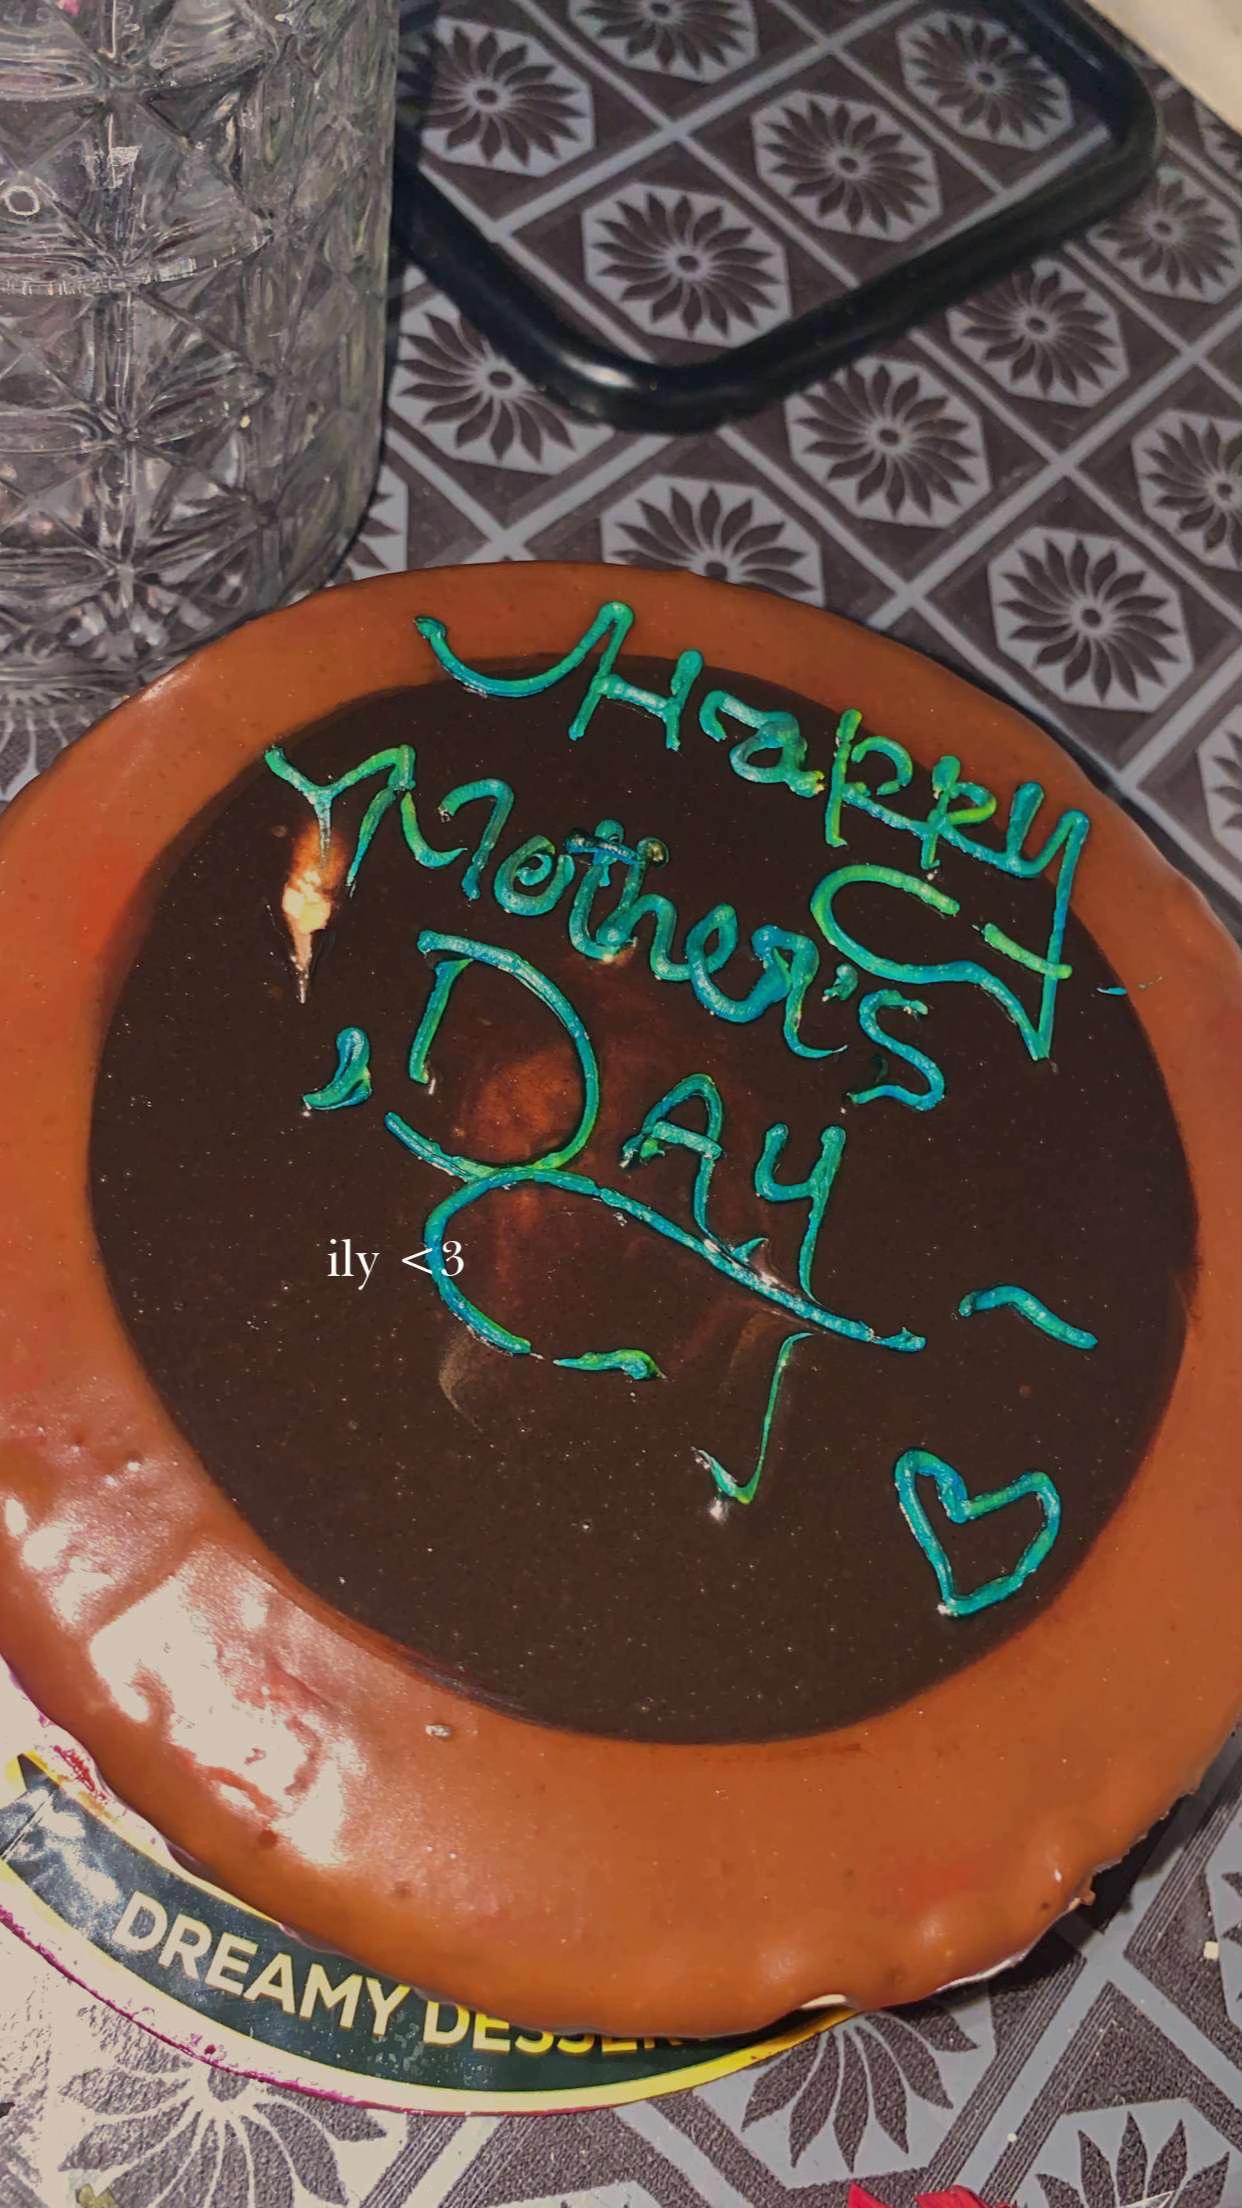 Happy
Mother's
Day
ily <3
DREAMY DESSER